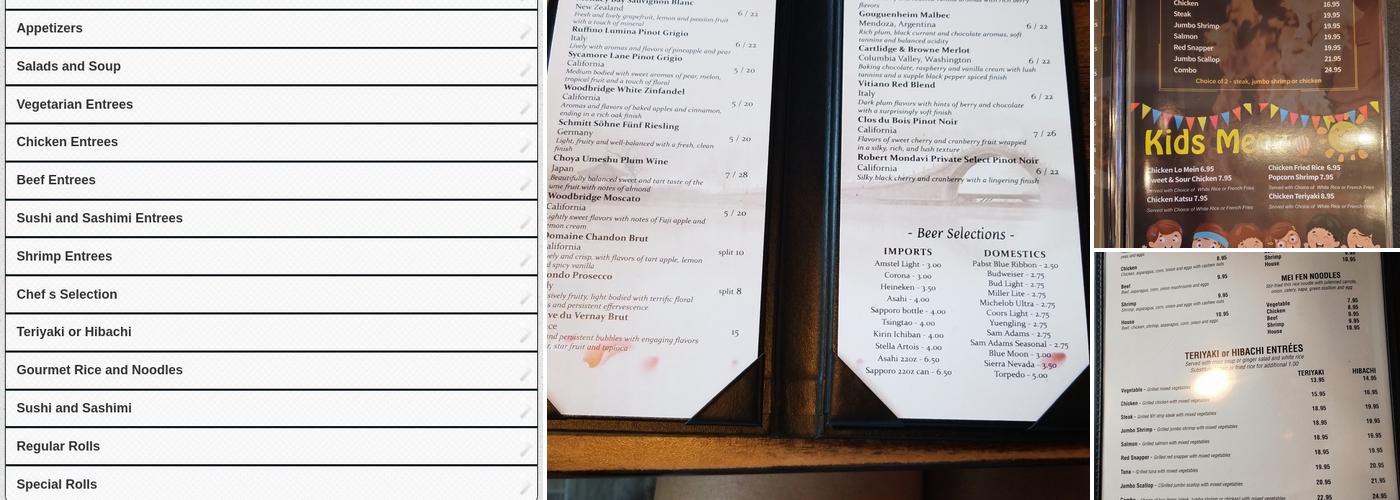 Appetizers
Salads and Soup
Vegetarian Entrees
Chicken Entrees
Beef Entrees
Sushi and Sashimi Entrees
Shrimp Entrees
Chef s Selection
Teriyaki or Hibachi
Gourmet Rice and Noodles
Sushi and Sashimi
Regular Rolls
Special Rolls
Bay Sauvignon Blanc
New Zealand 6 / 22
Fresh and lively grapefruit, lemon and passion fruit
with a touch of mineral
Ruffino Lumina Pinot Grigio
Italy 6 / 22
Lively with aromas and flavors of pineapple and pear
Sycamore Lane Pinot Grigio
California 5 / 20
Medium bodied with sweet aromas of pear, melon,
tropical fruit and a touch of floral
Woodbridge White Zinfandel
California 5 / 20
Aromas and flavors of baked apples and cinnamon,
ending in a rich oak finish
Schmitt Söhne Fünf Riesling
Germany 5 / 20
Light, fruity and well-balanced with a fresh, clean
finish
Choya Umeshu Plum Wine
Japan 7 / 28
Beautifully balanced sweet and tart taste of the
ume fruit with notes of almond
Woodbridge Moscato
California 5 / 20
ightly sweet flavors with notes of Fuji apple and
emon cream
Domaine Chandon Brut
alifornia split 10
ely and crisp, with flavors of tart apple, lemon
d spicy vanilla
ondo Prosecco
ly split 8
sively fruity, light bodied with terrific floral
s and persistent effervescence
ve du Vernay Brut
ce 15
nd persistent bubbles with engaging flavors
r, star fruit and tapioca
flavors
Gouguenheim Malbec
Mendoza, Argentina 6 / 22
Rich plum, black currant and chocolate aromas, soft
tannins and balanced acidity
Cartlidge & Browne Merlot
Columbia Valley, Washington 6 / 22
Baking chocolate, raspberry and vanilla cream with lush
tannins and a supple black pepper spiced finish
Vitiano Red Blend
Italy 6 / 22
Dark plum flavors with hints of berry and chocolate
with a surprisingly soft finish
Clos du Bois Pinot Noir
California 7 / 26
Flavors of sweet cherry and cranberry fruit wrapped
in a silky, rich, and lush texture
Robert Mondavi Private Select Pinot Noir
California 6 / 22
Silky black cherry and cranberry with a lingering finish
- Beer Selections -
IMPORTS
Amstel Light - 3.00
Corona - 3.00
Heineken - 3.50
Asahi - 4.00
Sapporo bottle - 4.00
Tsingtao - 4.00
Kirin Ichiban - 4.00
Stella Artois - 4.00
Asahi 22oz - 6.50
Sapporo 22oz can - 6.50
DOMESTICS
Pabst Blue Ribbon - 2.50
Budweiser - 2.75
Bud Light - 2.75
Miller Lite - 2.75
Michelob Ultra - 2.75
Coors Light - 2.75
Yuengling - 2.75
Sam Adams - 2.75
Sam Adams Seasonal - 2.75
Blue Moon - 3.00
Sierra Nevada - 3.50
Torpedo - 5.00
Chicken 16.95
Steak 19.95
Jumbo Shrimp 19.95
Salmon 19.95
Red Snapper 19.95
Jumbo Scallop 21.95
Combo 24.95
Choice of 2 - steak, jumbo shrimp or chicken
Kids Me
Chicken Lo Mein 6.95
Sweet & Sour Chicken 7.95
Served with Choice of White Rice or French Fries
Chicken Katsu 7.95
Served with Choice of White Rice or French Fries
Chicken Fried Rice 6.95
Popcorn Shrimp 7.95
Served with Choice of White Rice or French Fries
Chicken Teriyaki 8.95
Served with Choice of White Rice or French Fries
Chicken 8.95
Chicken, asparagus, corn, onion and eggs with cashew nuts
Beef 9.95
Beef, asparagus, corn, onion mushrooms and eggs
Shrimp 9.95
Shrimp, asparagus, corn, onion and eggs with cashew nuts
House 10.95
Beef, chicken, shrimp, asparagus, corn, onion and eggs
Shrimp
House 10.95
MEI FEN NOODLES
Stir-fried thin rice noodle with julienned carrots,
onion, celery, napa, green scallion and egg
Vegetable 7.95
Chicken 8.95
Beef 9.95
Shrimp 9.95
House 10.95
TERIYAKI or HIBACHI ENTRÉES
Served with miso soup or ginger salad and white rice
Substitute fried rice for additional 1.00
TERIYAKI HIBACHI
Vegetable - Grilled mixed vegetables 13.95 14.95
Chicken - Grilled chicken with mixed vegetables 15.95 16.95
Steak - Grilled NY strip steak with mixed vegetables 18.95 19.95
Jumbo Shrimp - Grilled jumbo shrimp with mixed vegetables 18.95 19.95
Salmon - Grilled salmon with mixed vegetables 18.95 19.95
Red Snapper - Grilled red snapper with mixed vegetables 18.95 19.95
Tuna - Grilled tuna with mixed vegetables 19.95 20.95
Jumbo Scallop - Grilled jumbo scallop with mixed vegetables 20.95 21.95
22.95 24.95